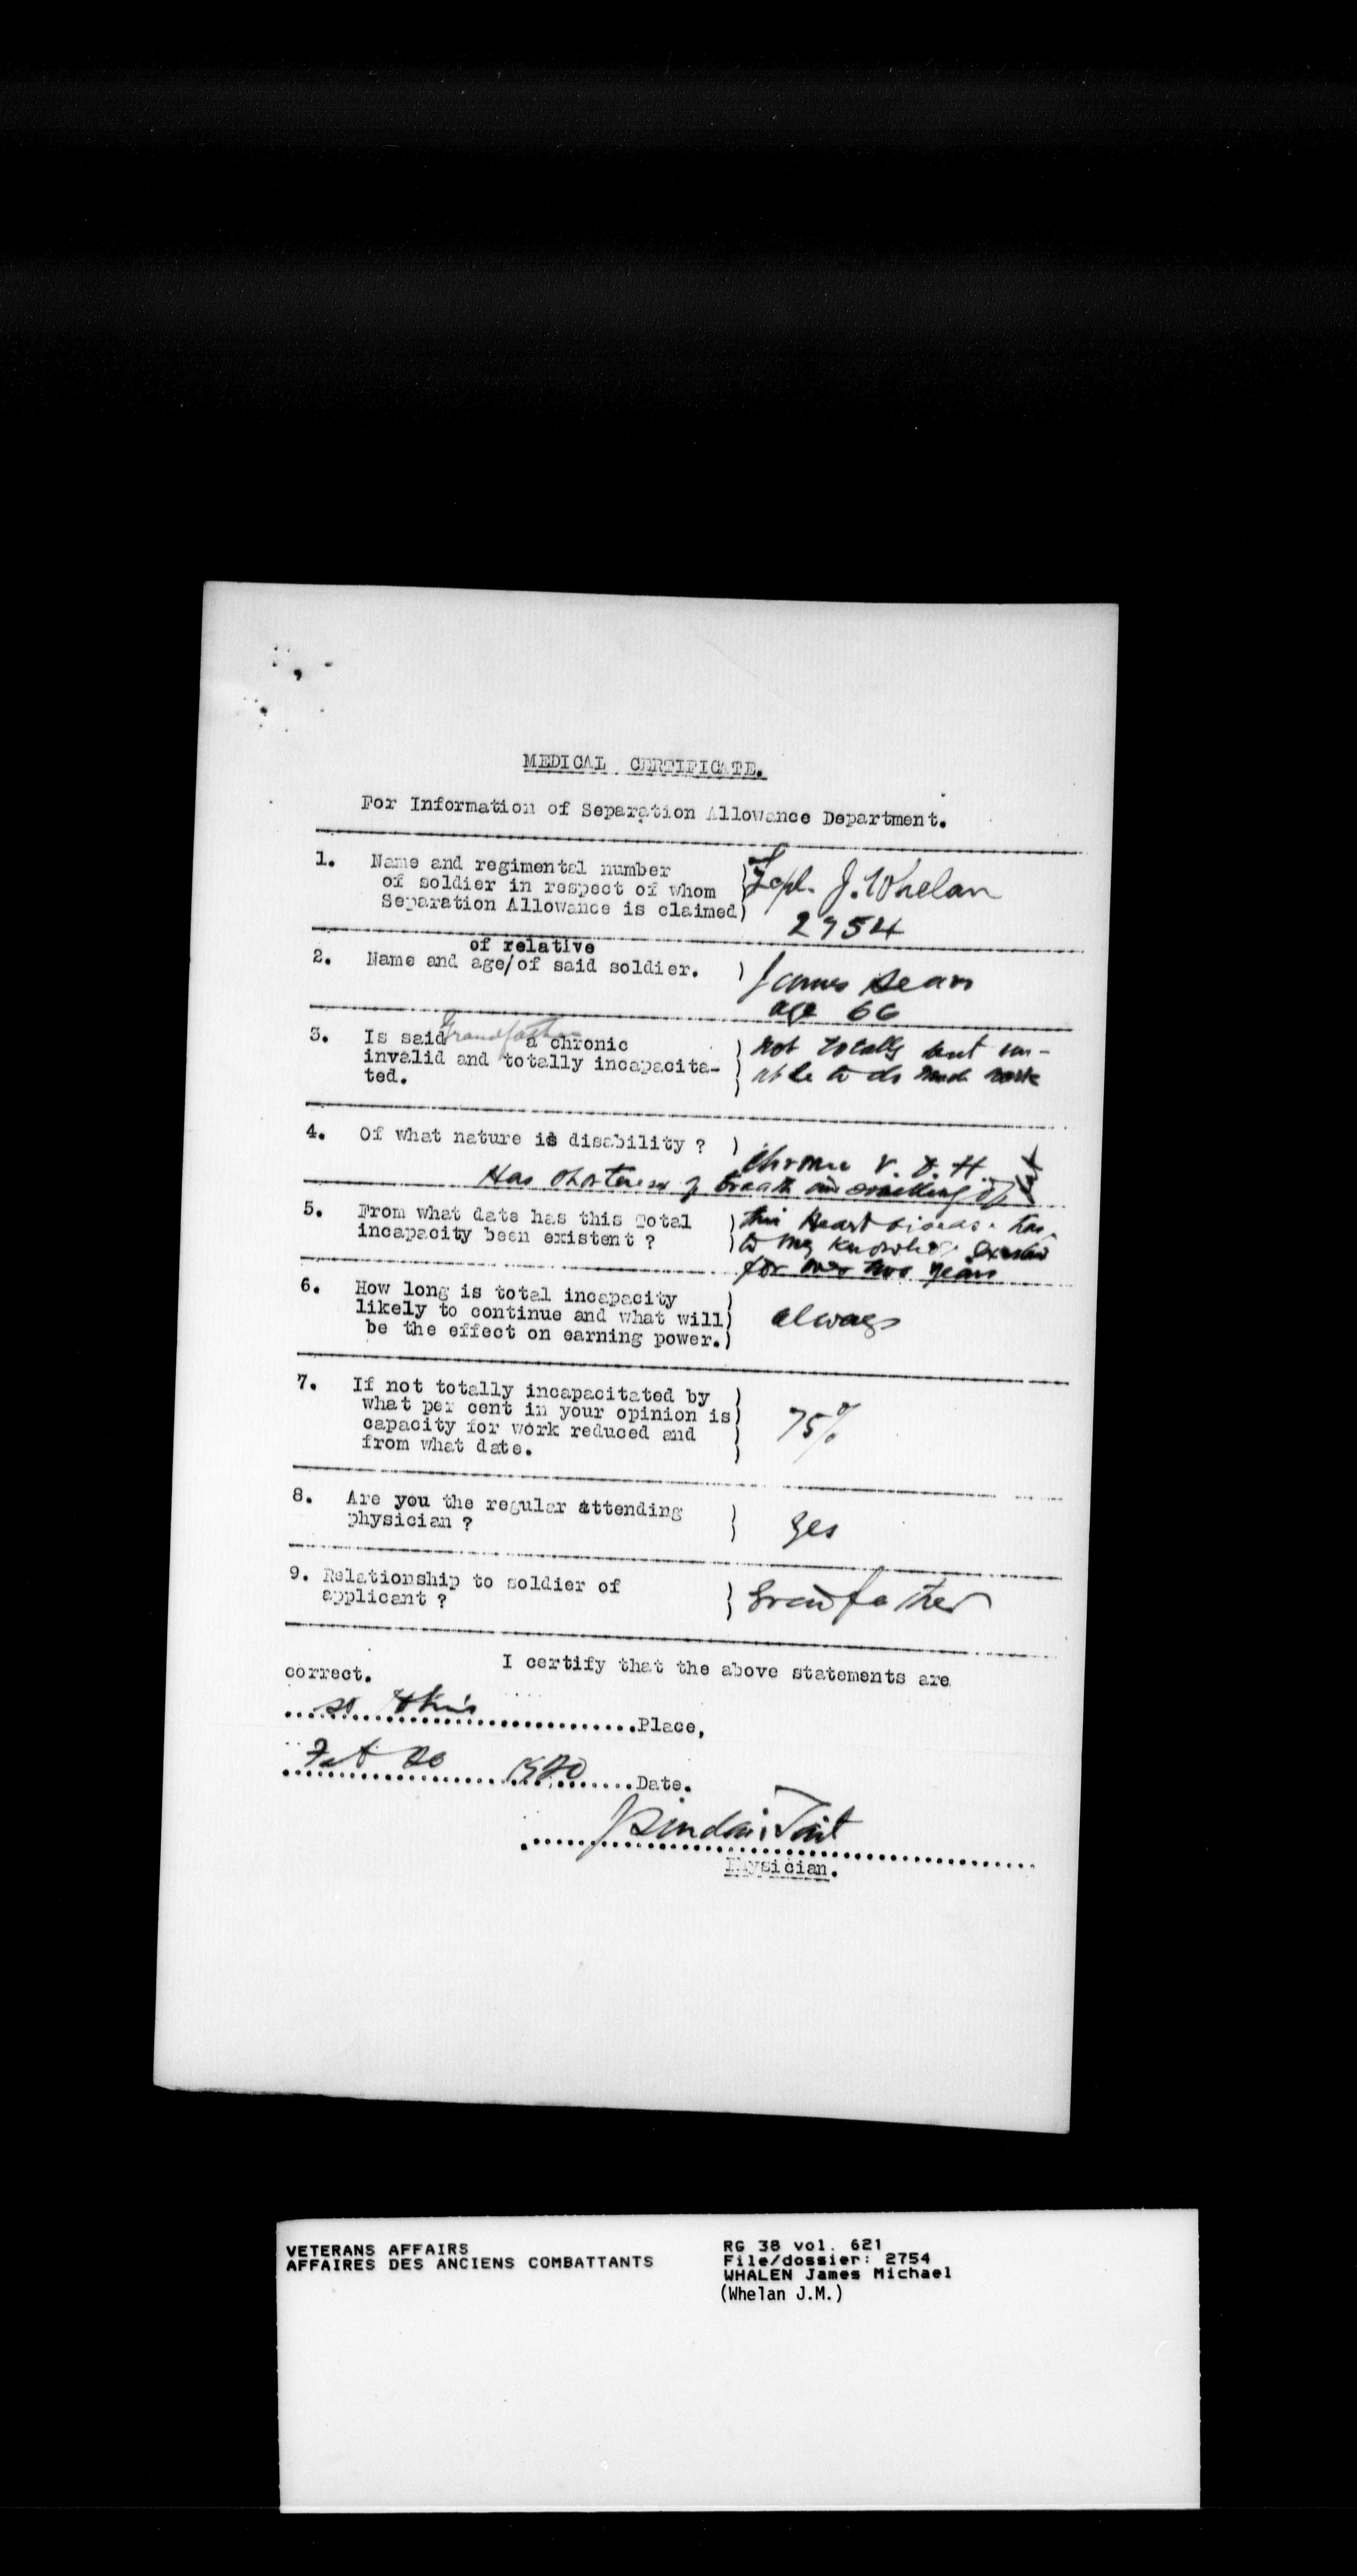 MEDICAL CERTIFICATE.
For Information of Separation Allowance Department.
1. Name and regimental number
of soldier in respect of whom
Separation Allowance is claimed)
J. Whelan
2754
of relative
2. Name and age/of said soldier. )
James Dean
age 66
3. Is said Grandfather a chronic
invalid and totally incapacita-
ted.
not totally but un-
able to do much work
4. Of what nature is disability ? )
Chronic V. D. H.
Has shortness of breath on walking
5. From what date has this Total
incapacity been existent ?
this Heart disease has
to my knowledge existed
for over two years
6. How long is total incapacity
likely to continue and what will)
be the effect on earning power.)
always
7. If not totally incapacitated by
what per cent in your opinion is)
capacity for work reduced and
from what date.
75%
8. Are you the regular attending
physician ?
yes
9. Relationship to soldier of
applicant ?
Grandfather
I certify that the above statements are
correct.
St Johns
Place,
Feb 20 1920 Date.
J Sinclair Tait
Physician.
VETERANS AFFAIRS
AFFAIRES DES ANCIENS COMBATTANTS
RG 38 vol. 621
File/dossier: 2754
WHALEN James Michael
(Whelan J.M.)